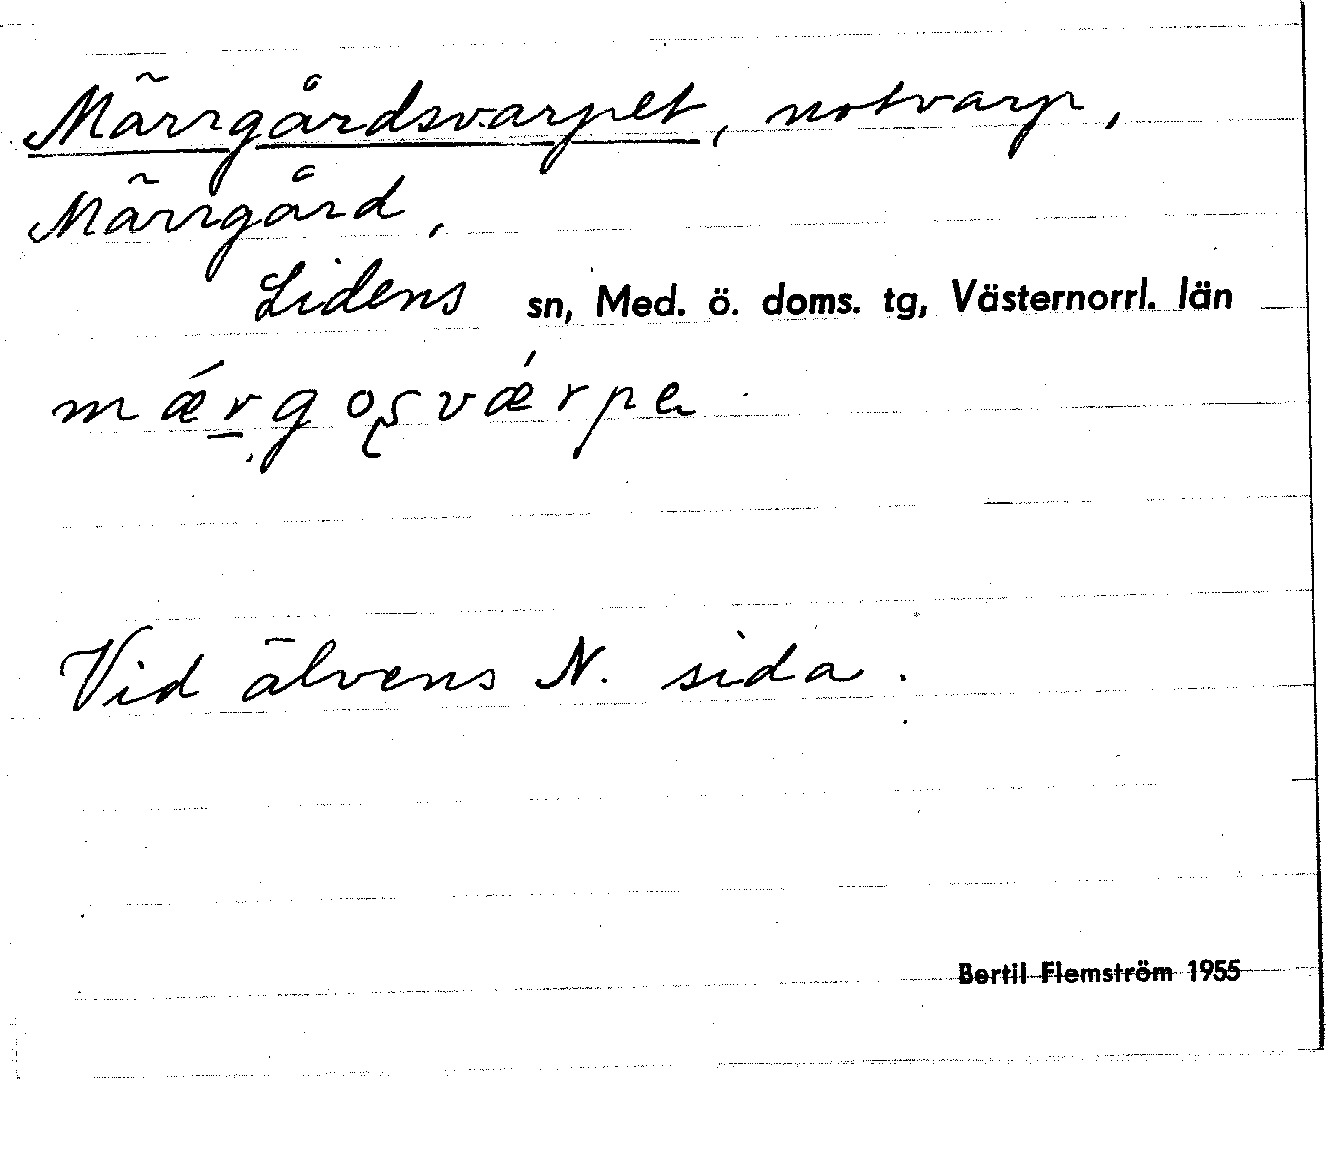 Märrgårdsvarpet, notvarp,
Märrgård,
Lidens sn, Med. ö. doms. tg, Västernorrl. län
mǽrgoʂvǽrpe
Vid älvens N. sida.
Bertil Flemström 1955